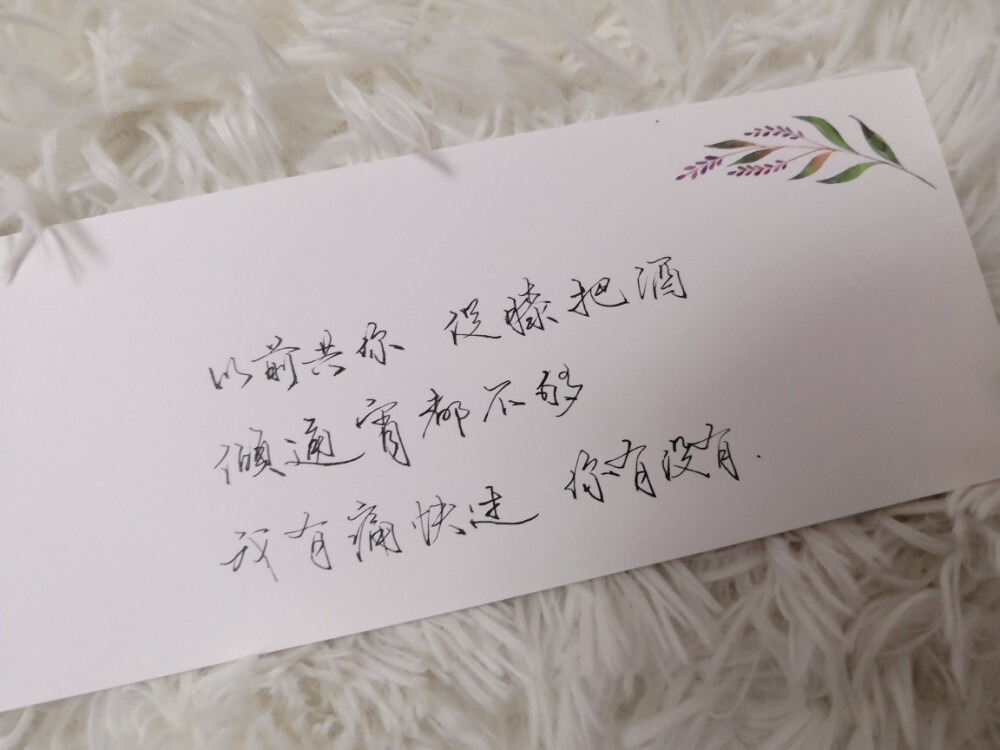 以前共你 促膝把酒
倾通宵都不够
我有痛快过 你有没有.